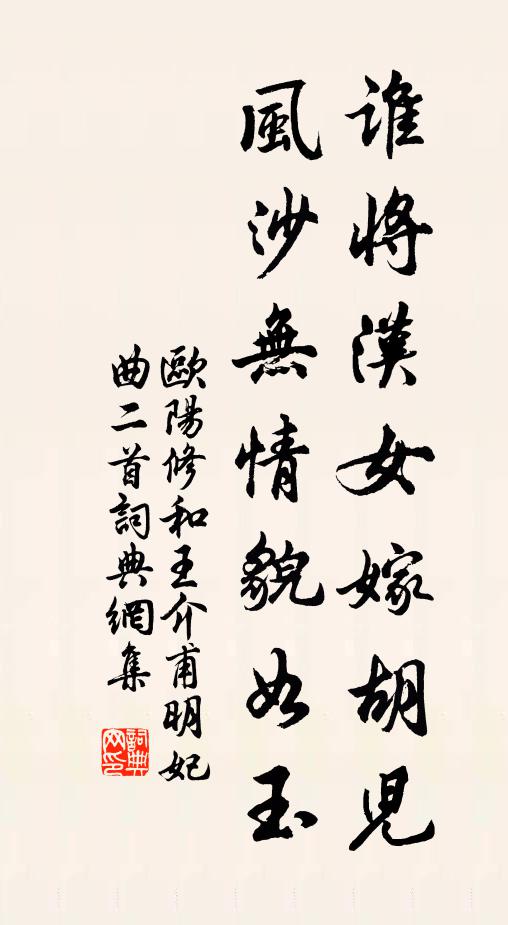 誰將漢女嫁胡兒
風沙無情貌如玉
歐陽修和王介甫明妃
曲二首詞典網集
詞典
网印